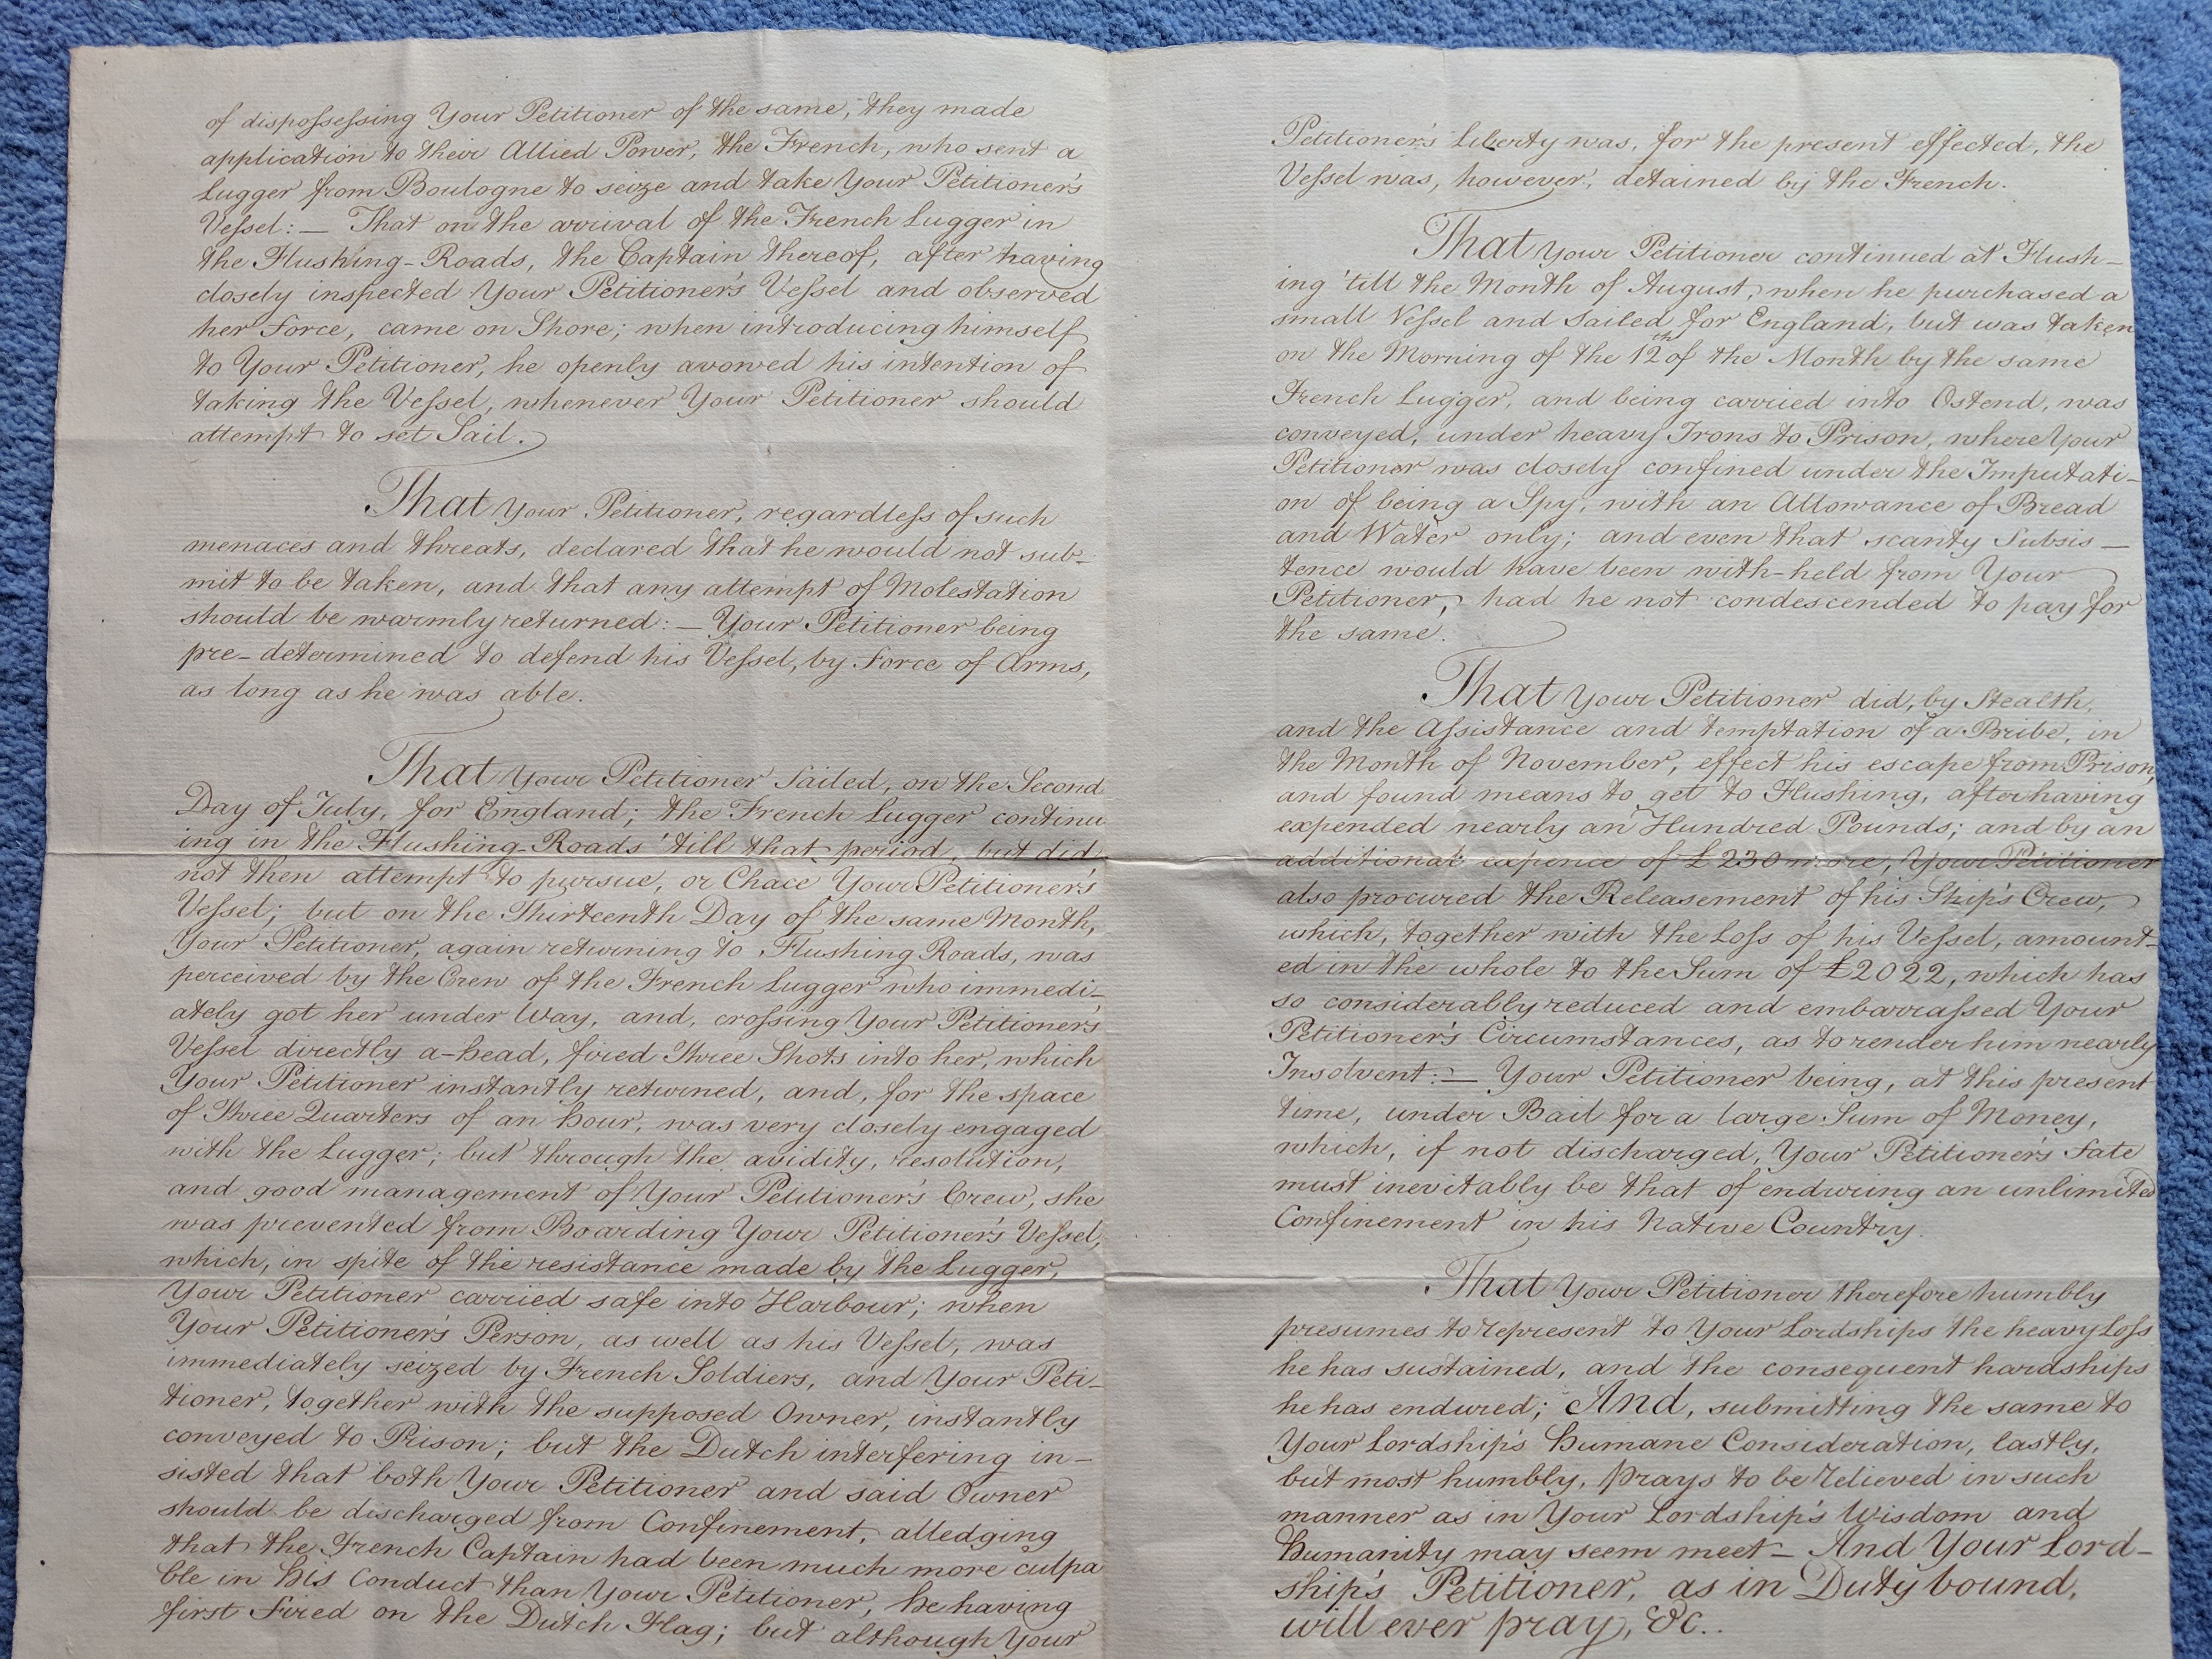 of dispossessing Your Petitioner of the same, they made
application to their Allied Power, the French, who sent a
Lugger from Boulogne to seize and take Your Petitioner's
Vessel:— That on the arrival of the French Lugger in
the Flushing-Roads, the Captain thereof, after having
closely inspected Your Petitioner's Vessel and observed
her force, came on Shore; when introducing himself
to Your Petitioner, he openly avowed his intention of
taking the Vessel, whenever Your Petitioner should
attempt to set Sail.
That Your Petitioner, regardless of such
menaces and threats, declared that he would not sub-
mit to be taken, and that any attempt of Molestation
should be warmly returned:— Your Petitioner being
pre-determined to defend his Vessel, by force of Arms,
as long as he was able.
That Your Petitioner Sailed, on the Second
Day of July, for England; the French Lugger continu
ing in the Flushing-Roads 'till that period, yet did
not then attempt to pursue, or Chace Your Petitioner's
Vessel; but on the Thirteenth Day of the same Month,
Your Petitioner, again returning to Flushing Roads, was
perceived by the Crew of the French Lugger who immedi-
ately got her under Way, and, crossing Your Petitioner's
Vessel directly a-head, fired three Shots into her, which
Your Petitioner instantly returned, and, for the space
of Three Quarters of an Hour, was very closely engaged
with the Lugger; but through the avidity, resolution,
and good management of Your Petitioner's Crew, she
was prevented from Boarding Your Petitioner's Vessel,
which, in spite of the resistance made by the Lugger,
Your Petitioner carried safe into Harbour; when
Your Petitioner's Person, as well as his Vessel, was
immediately seized by French Soldiers, and Your Peti-
tioner, together with the supposed Owner, instantly
conveyed to Prison; but the Dutch interfering in-
sisted that both Your Petitioner and said Owner
should be discharged from Confinement, alledging
that the French Captain had been much more culpa
ble in his Conduct than Your Petitioner, he having
first Fired on the Dutch Flag; but although Your
Petitioner's Liberty was, for the present effected, the
Vessel was, however, detained by the French.
That Your Petitioner continued at Flush-
ing 'till the Month of August, when he purchased a
small Vessel and Sailed for England; but was taken
on the Morning of the 12th of the Month by the same
French Lugger, and being carried into Ostend, was
conveyed, under heavy Irons to Prison, where Your
Petitioner was closely confined under the Imputati-
on of being a Spy, with an Allowance of Bread
and Water only; and even that scanty Subsis-
tence would have been with-held from Your
Petitioner, had he not condescended to pay for
the same.
That Your Petitioner did, by Stealth,
and the Assistance and temptation of a Bribe, in
the Month of November, effect his escape from Prison,
and found means to get to Flushing, after having
expended nearly an Hundred Pounds; and by an
additional expence of £230 more, Your Petitioner
also procured the Releasement of his Ship's Crew,
which, together with the Loss of his Vessel, amount-
ed in the whole to the Sum of £2022, which has
so considerably reduced and embarrassed Your
Petitioner's Circumstances, as to render him nearly
Insolvent:— Your Petitioner being, at this present
time, under Bail for a large Sum of Money,
which, if not discharged, Your Petitioner's Fate
must inevitably be that of enduring an unlimited
Confinement in his Native Country.
That Your Petitioner therefore humbly
presumes to represent to Your Lordships the heavy Loss
he has sustained, and the consequent hardships
he has endured; And, submitting the same to
Your Lordship's Humane Consideration, lastly,
but most humbly, prays to be relieved in such
manner as in Your Lordship's Wisdom and
Humanity may seem meet— And Your Lord-
ship's Petitioner, as in Duty bound,
will ever pray, &c.